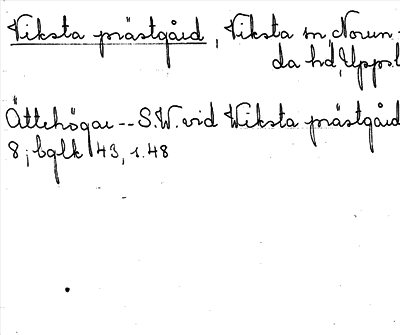 Viksta prästgård, Viksta sn Norun-
da hd, Uppsl.
Ättehögar -- S.W. vid Wiksta prästgård
8; bglk 43, s. 48